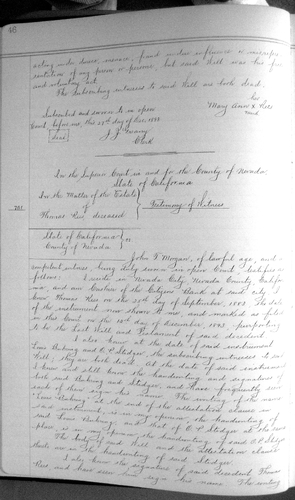 46
acting under duress, menace, fraud, undue influence or misrepre-
sentation of any person or persons, but said Will was his free
and voluntary act.
The Subscribing witnesses to said Will are both dead.
her
Mary Ann X Rice
mark
Subscribed and sworn to in open
Court before me, this 28th day of Dec. 1888
Seal
Clerk
In the Superior Court in and for the County of Nevada
State of California
In the Matter of the Estate
of
Thomas Rice, deceased
Testimony of Witness
State of California
County of Nevada
ss.
John T Morgan, of lawful age, and a
competent witness, being duly sworn in open Court, testifies as
follows: I reside in Nevada City, Nevada County, Califor-
nia, and am Cashier of the Citizens Bank at said city. I
knew Thomas Rice on the 29th day of September, 1883, the date
of the instrument now shown to me, and marked as filed
in this Court on the day of December, 1888, purporting
to be the Last Will and Testament of said decedent.
I also knew at the date of said instrument
and E. P. Sledger, the subscribing witnesses to said
Will; they are both dead. At the date of said instrument
I knew and still know the handwriting and signature of
both said and Sledger, and have frequently seen
each of them sign his name. The writing of the name
at the end of the attestation clause in
said instrument, is in my opinion, the handwriting of
said and that of E. P. Sledger at the same
place, is in my opinion, the handwriting of said E. P. Sledger.
The body of said Will and the attestation clause
thereto are in the handwriting of said Sledger.
I also know the signature of said decedent Thomas
Rice and have seen him sign his name. The writing